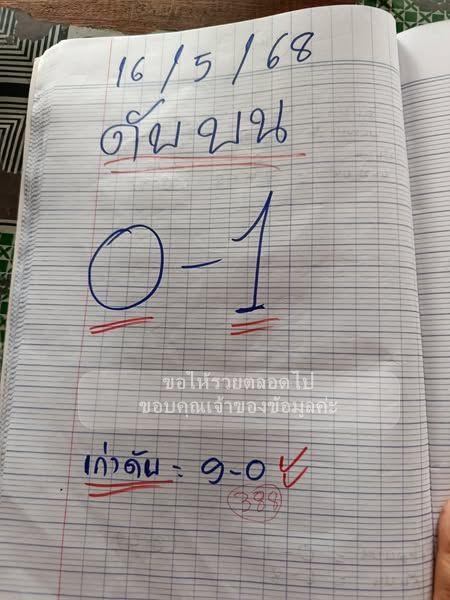 16/5/68
ดับบน
0-1
ขอให้รวยตลอดไป
ขอบคุณเจ้าของข้อมูลค่ะ
เก่าดับ = 9-0
388